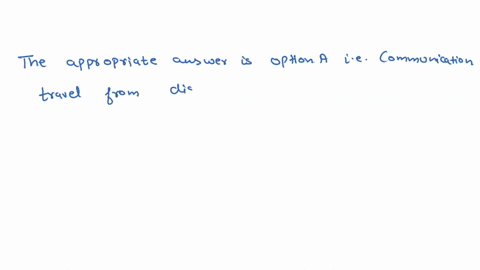 The appropriate answer is option A i.e. Communication
travel from dis